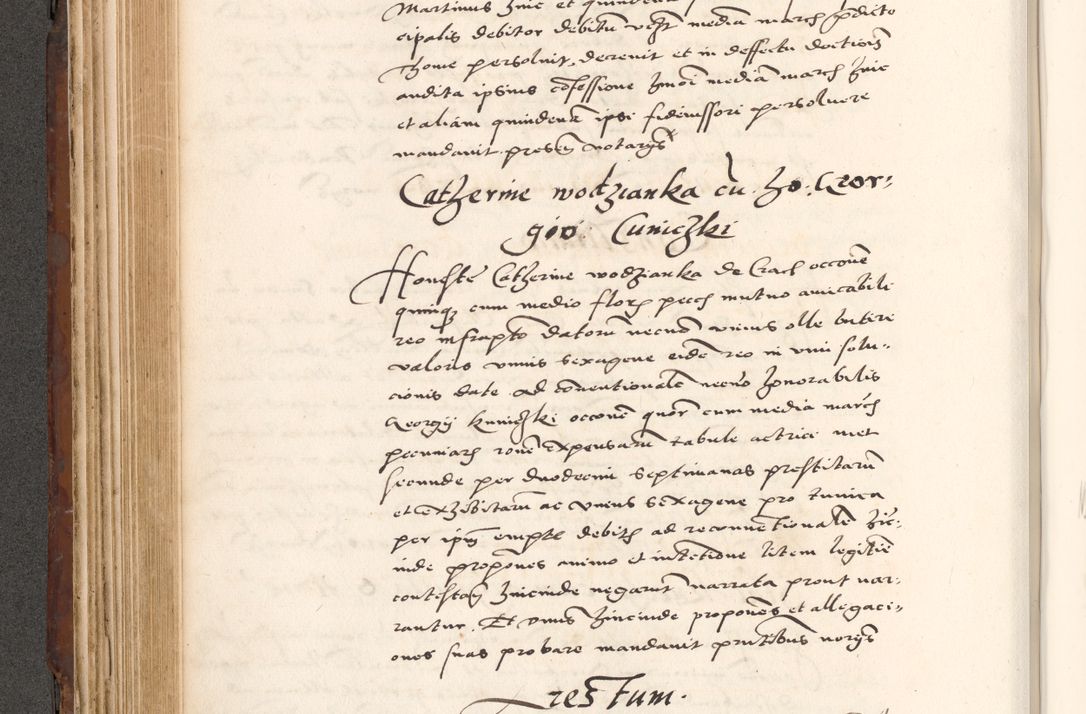 Martinus hinc et quindena
cipalis debitor debitu vcz mediā march pdicto
Thome persolvit, decrevit et in deffectu doctiōis
audita ipsius cōfessione hmōi mediā march hinc
et aliam quindenā ipsi fideiussori persoluere
mandavit presen notarys
Catherine wodzianka cū ho. Geor-
gio Cuniczki
Honeste Catherine wodzianka de Crac occōne
quinqz cum medio flor pecch mutuo amicabili
reo infrapto datorū necnō vnius olle butiri
valoris vnius sexagene eidē reo in vim solu-
cionis date ad cōventionale necnō honorabilis
Georgy kuniczki occōnē quor cum media march
pecuniarh rōne Expensarū tabule actrici met
secunde per duodecim septimanas prestitarū
et Exhibitarū ac vnius sexagene pro tunica
per ipm empte debith ad reconventionalē hic-
inde propōnes animo et intētione litem legitīe
contestan hincinde negarūt narrata prout nar-
rantur. Et dnus hincinde propōnes et allegaci-
ones suas probare mandavit prntibus norys
restum.